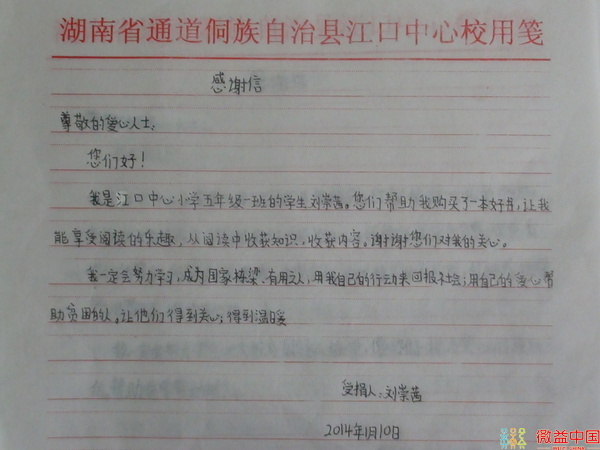 湖南省通道侗族自治县江口中心校用笺
感谢信
尊敬的爱心人士:
您们好!
我是江口中心小学五年级一班的学生刘崇茜。您们帮助我购买了一本好书,让我
能享受阅读的乐趣,从阅读中收获知识,收获内容。谢谢您们对我的关心。
我一定会努力学习,成为国家栋梁、有用之人,用我自己的行动来回报社会;用自己的爱心帮
助贫困的人。让他们得到关心;得到温暖
受捐人:刘崇茜
2014年1月10日
微益中国